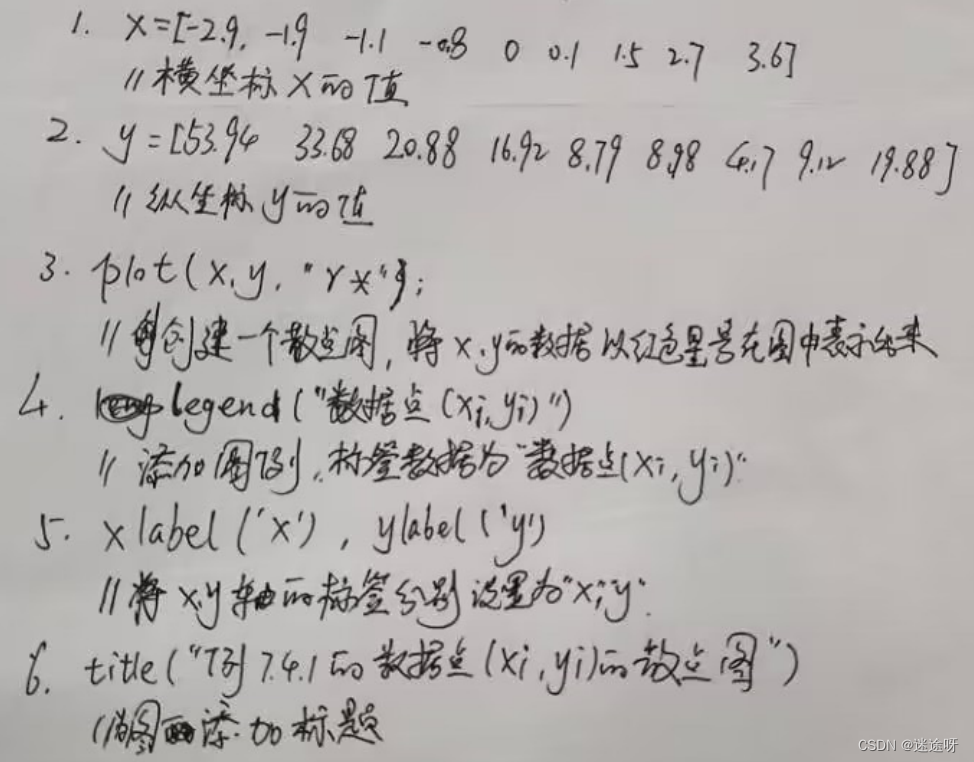 1. x=[-2.9, -1.9 -1.1 -0.8 0 0.1 1.5 2.7 3.6]
// 横坐标 X 的值
2. y=[53.94 33.68 20.88 16.92 8.79 8.98 4.17 9.12 19.88]
// 纵坐标 y 的值
3. plot(x,y,"r*");
// 创建一个散点图,将 x,y的数据以红色星号在图中表示出来
4. legend("数据点(xi,yi)")
// 添加图例,标签数据为"数据点(xi,yi)"
5. xlabel('x'), ylabel('y')
// 将 x,y 轴的标签分别设置为"x,y"
6. title("例7.4.1的数据点(xi,yi)的散点图")
// 图 添加标题
CSDN @迷途呀